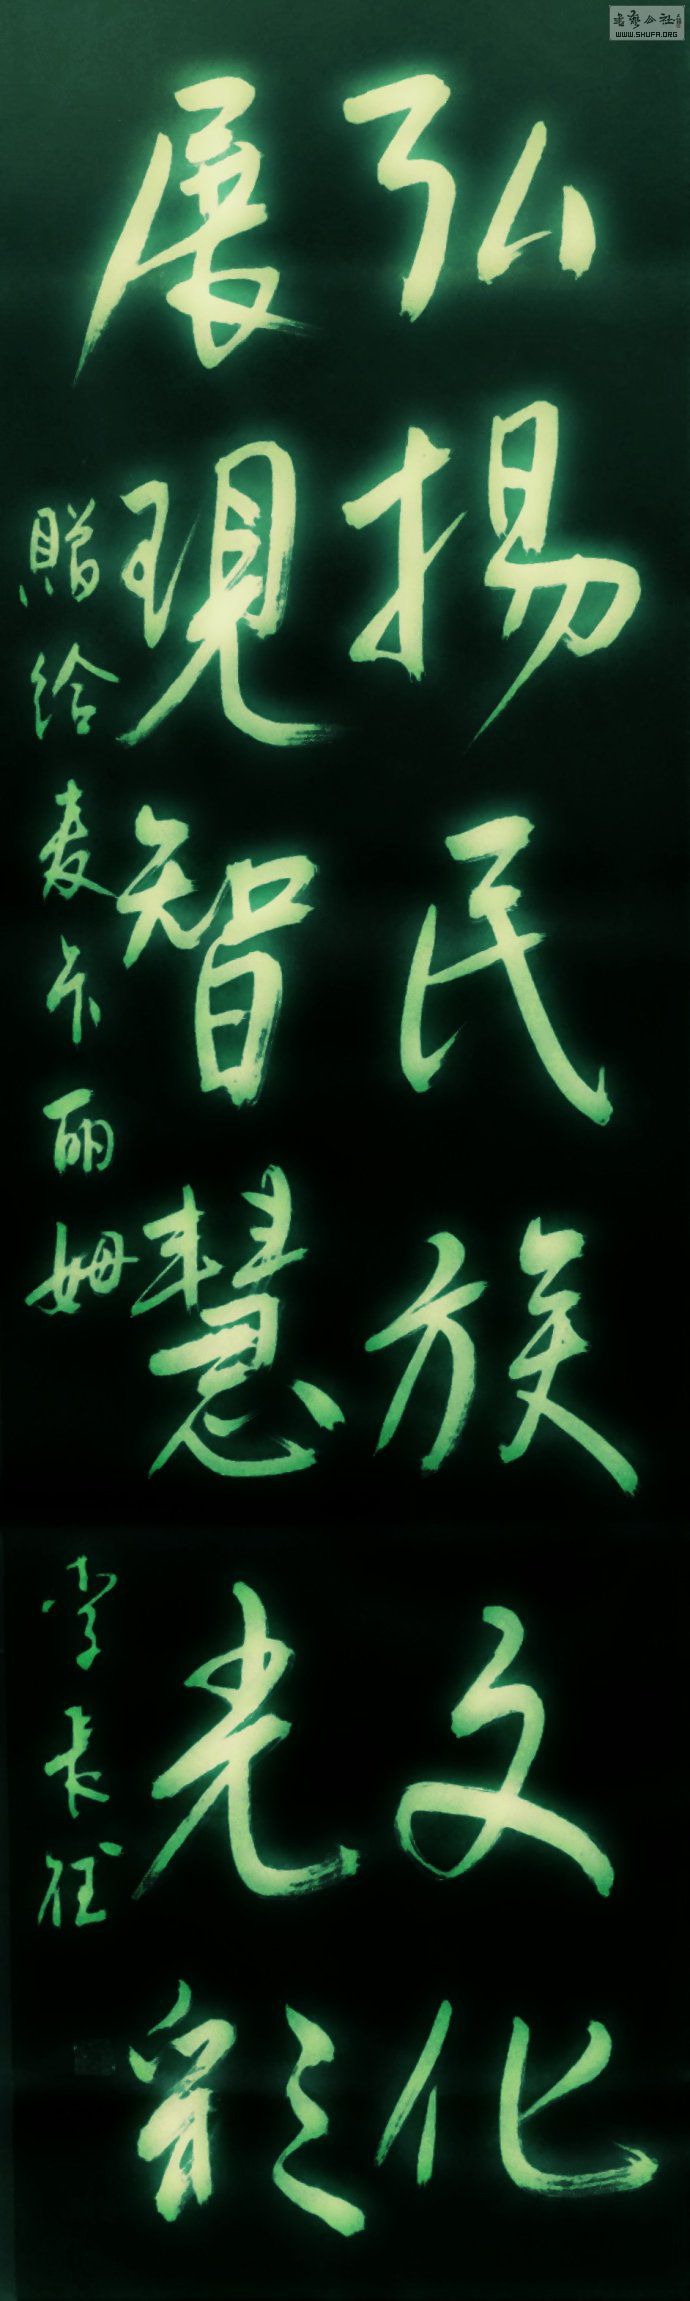 弘揚民族文化
展現智慧光彩
贈给麦卡丽姆
李長征
书艺公社
WWW.SHUFA.ORG